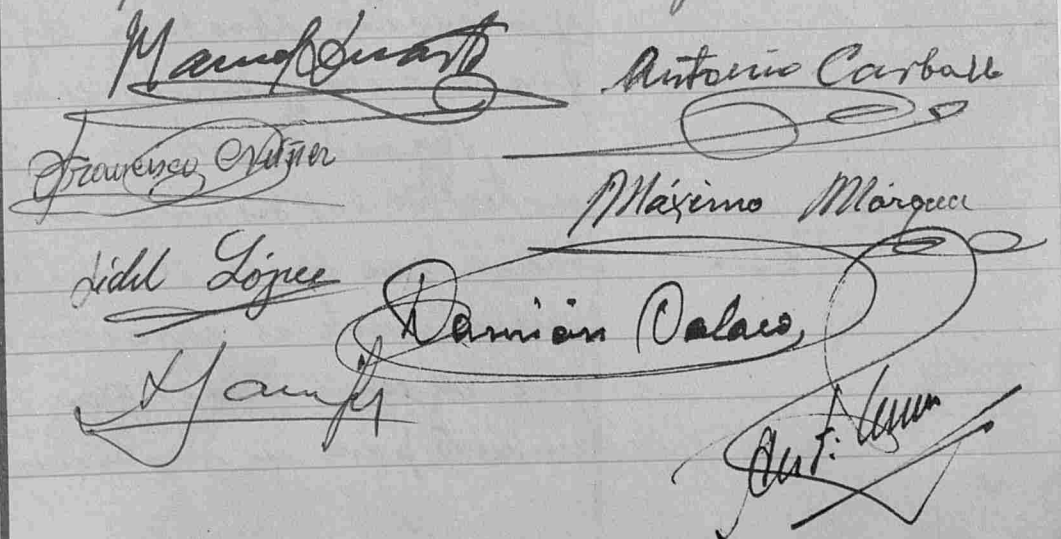 Manuel Duarte
Antonio Carballo
Francisco Núñez
Máximo Márquez
Fidel López
Damián
Ant.